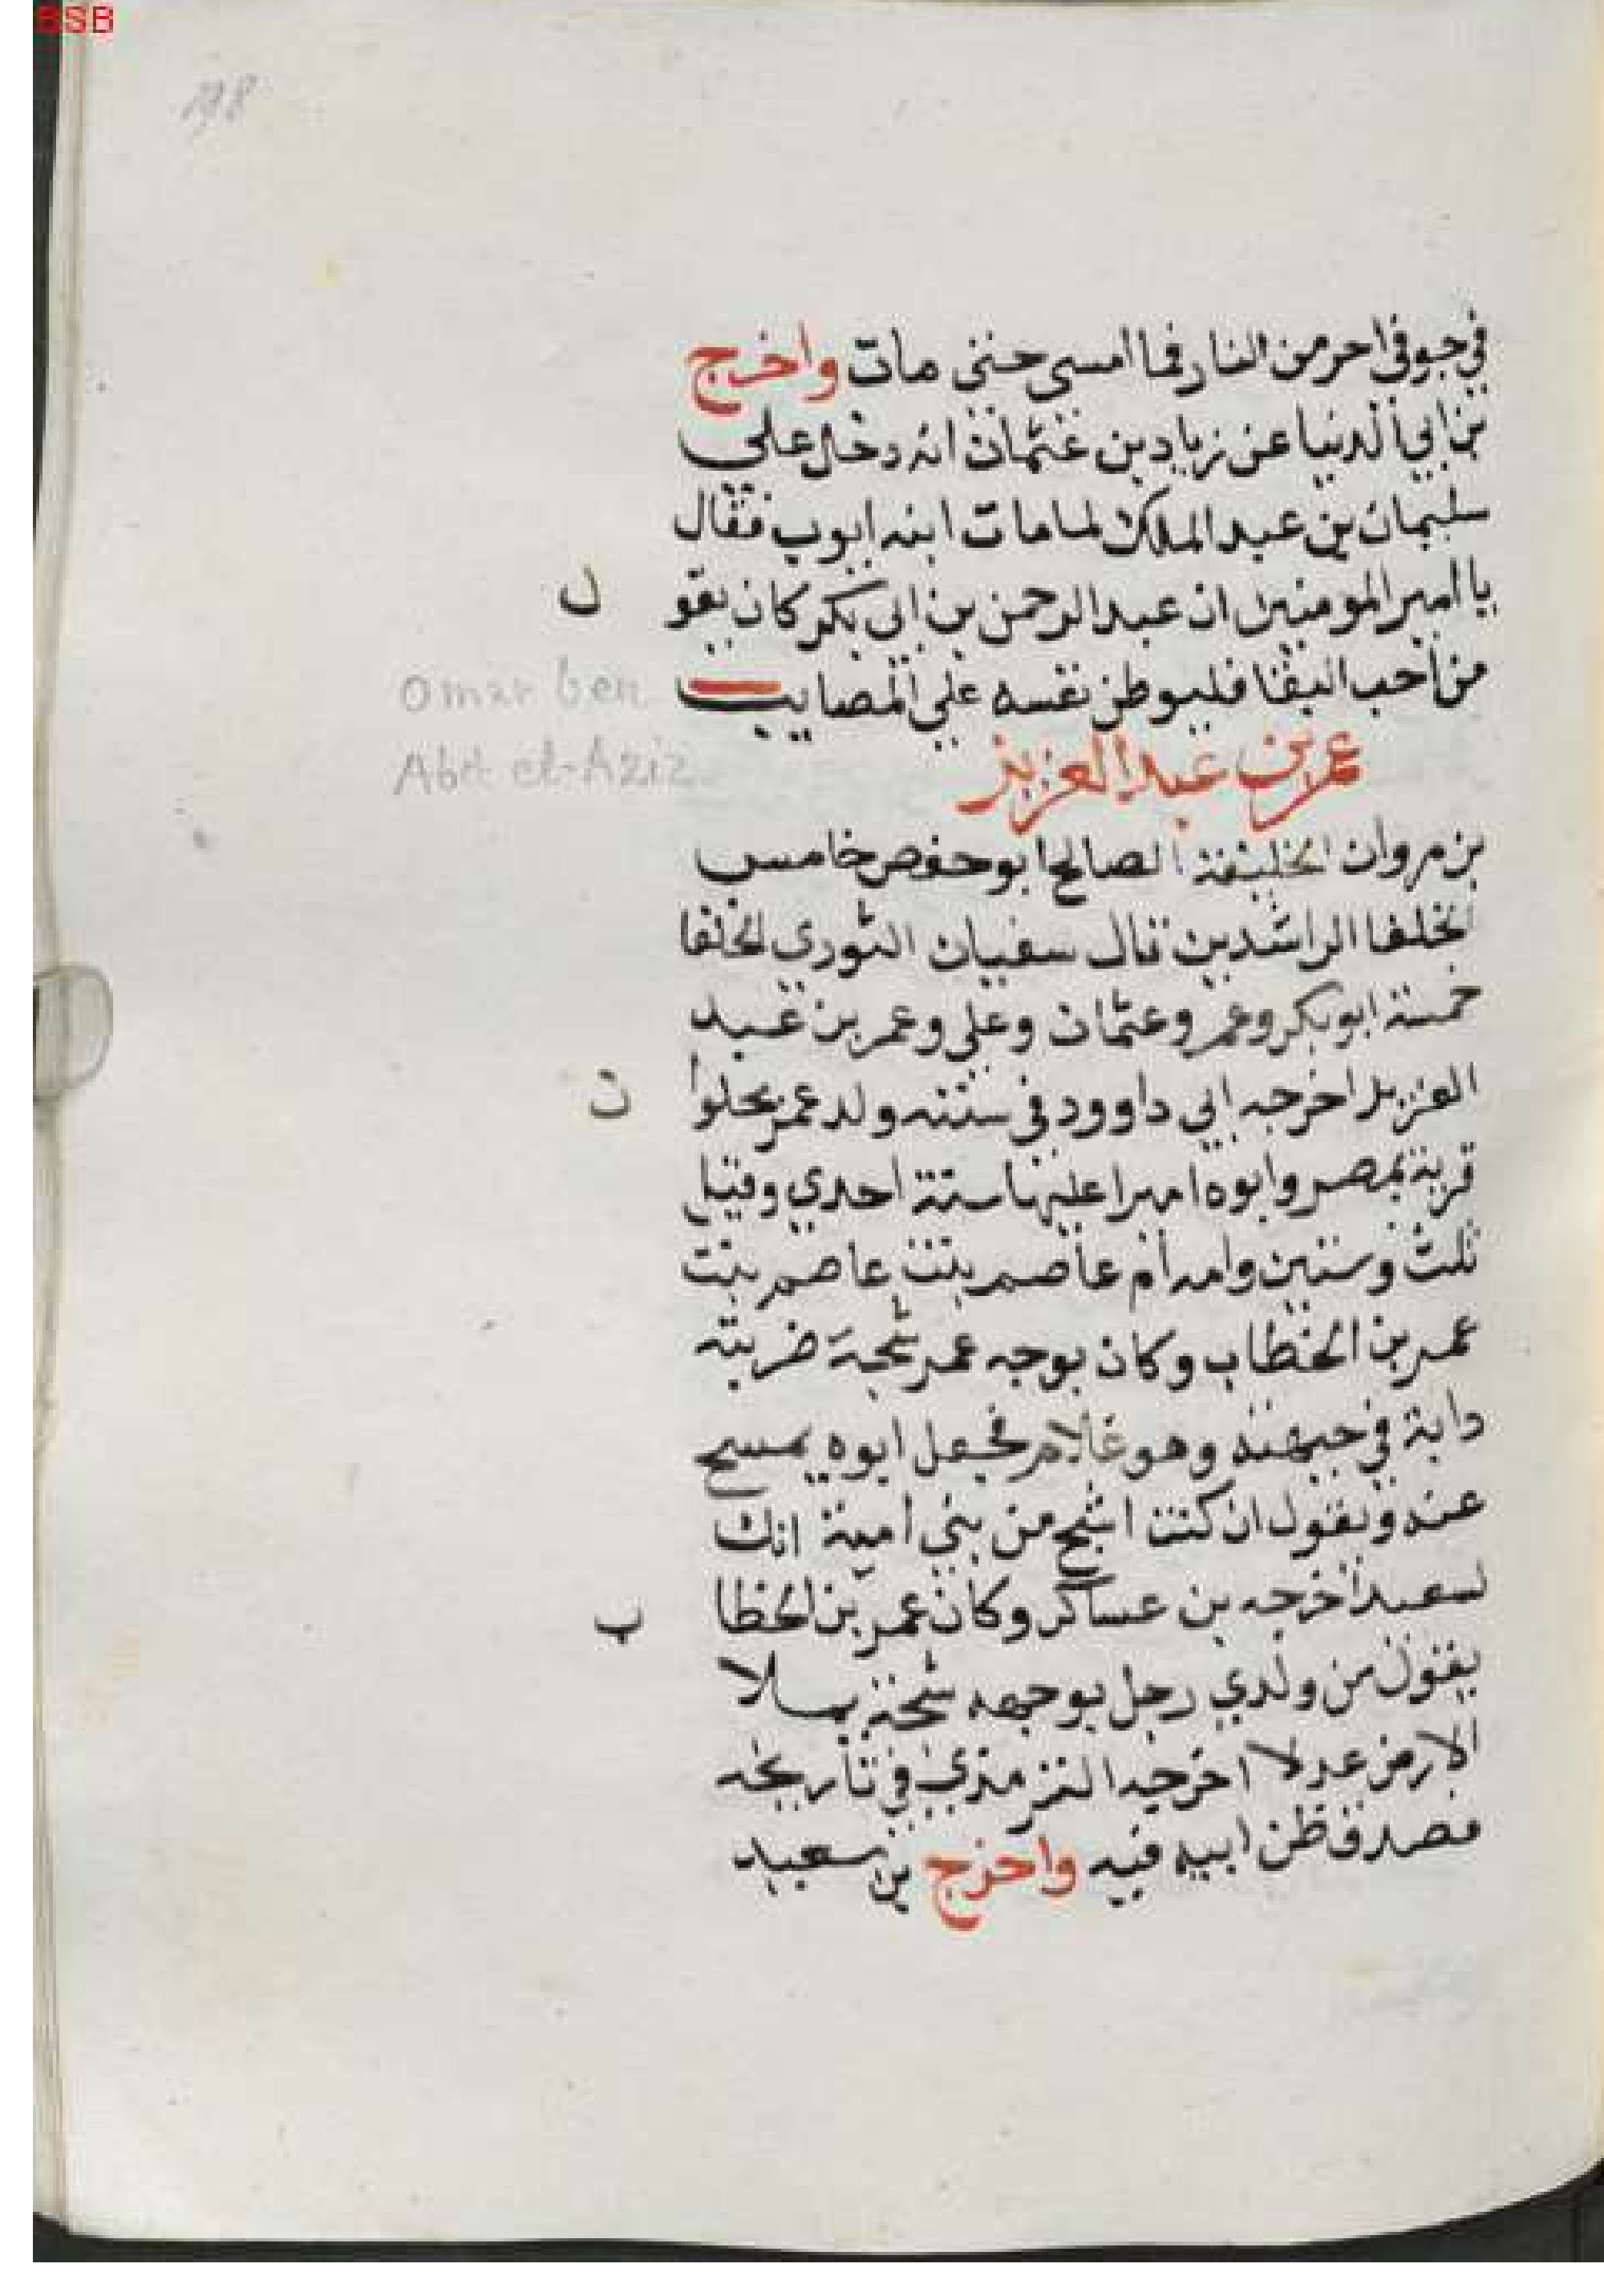 BSB
198
في جوفي احر من النار فما امسى حتى مات واخرج
بن ابي الدنيا عن زياد بن عثمان انه دخل علي
سليمان بن عبد الملك لما مات ابنه ايوب فقال
يا امير المومنين ان عبد الرحمن بن ابي بكر كان يقو ل
من احب البقا فليوطن نفسه علي المصايب
Omar ben
Abd el-Aziz
عمر بن عبد العزيز
بن مروان الخليفة الصالح ابو حفص خامس
الخلفا الراشدين قال سفيان الثوري الخلفا
خمسة ابو بكر وعمر وعثمان وعلي وعمر بن عبد
العزيز اخرجه ابي داوود في سننه ولد عمر بحلوا ن
قرية بمصر وابوه اميرا عليها سنة احدي وقيل
ثلث وستين وامه ام عاصم بنت عاصم بنت
عمر بن الخطاب وكان بوجه عمر شجة ضربته
دابة في جبهته وهو غلام فجعل ابوه يمسح
عنه ويقول ان كنت اشج من بني امية انك
لسعيد اخرجه بن عساكر وكان عمر بن الخطا ب
يقول من ولدي رجل بوجهه شجة يملا
الارض عدلا اخرجه الترمذي في تاريخه
فصدق ظن ابيه فيه واخرج بن سعيد